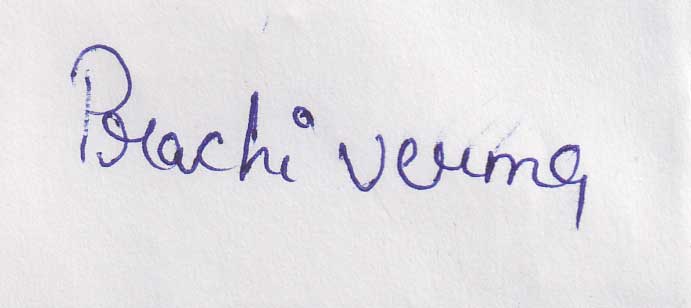 Prachi verma